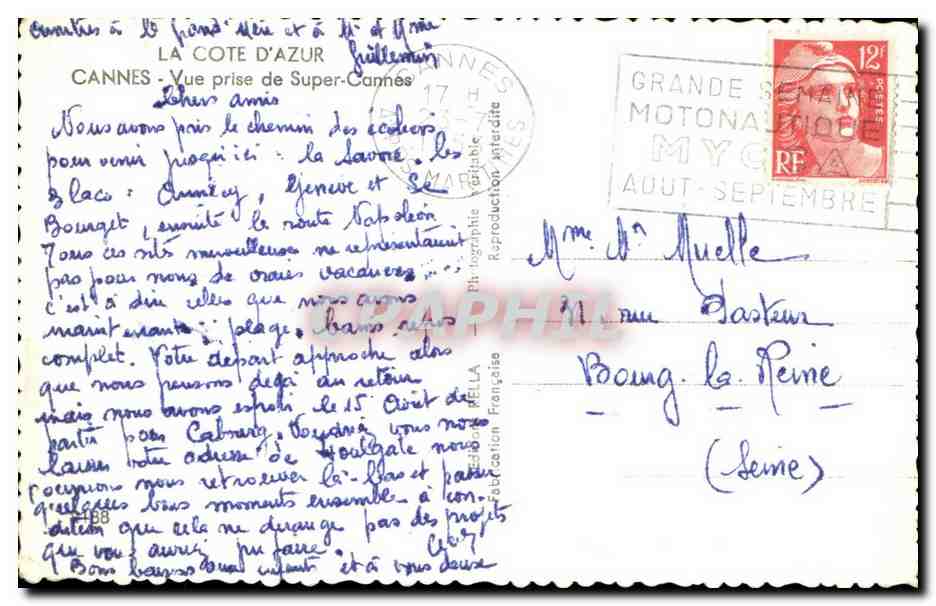 amitiés à la grand'mère et à Mr et Mme
Guillemin
LA COTE D'AZUR
CANNES - Vue prise de Super-Cannes
Chers amis
Nous avons pris le chemin des écoliers
pour venir jusqu'ici : la Savoie, les
lacs : Annecy, Genève et Le
Bourget, ensuite la route Napoléon
Tous ces sites merveilleux ne représentaient
pas pour nous de vraies vacances
c'est à dire celles que nous avons
maintenant : plage, bains, repos
complet. Votre départ approche alors
que nous pensons déjà au retour
mais nous avons espoir le 15 Août de
partir pour Cabourg. Voudriez vous nous
laisser votre adresse de Houlgate nous
pourrions nous retrouver là-bas et passer
quelques bons moments ensemble à con-
dition que cela ne dérange pas des projets
que vous auriez pu faire.
Bons baisers aux enfants et à vous deux
88
Editions RELLA
Fabrication Française
Photographie Véritable
Reproduction interdite
CANNES
17 H
MARITIMES
GRANDE SEMAINE
MOTONAUTIQUE
MYCA
AOUT - SEPTEMBRE
12F
POSTES
RF
Mme Mr Muelle
31 rue Pasteur
Bourg-la-Reine
(Seine)
CPAPHIL